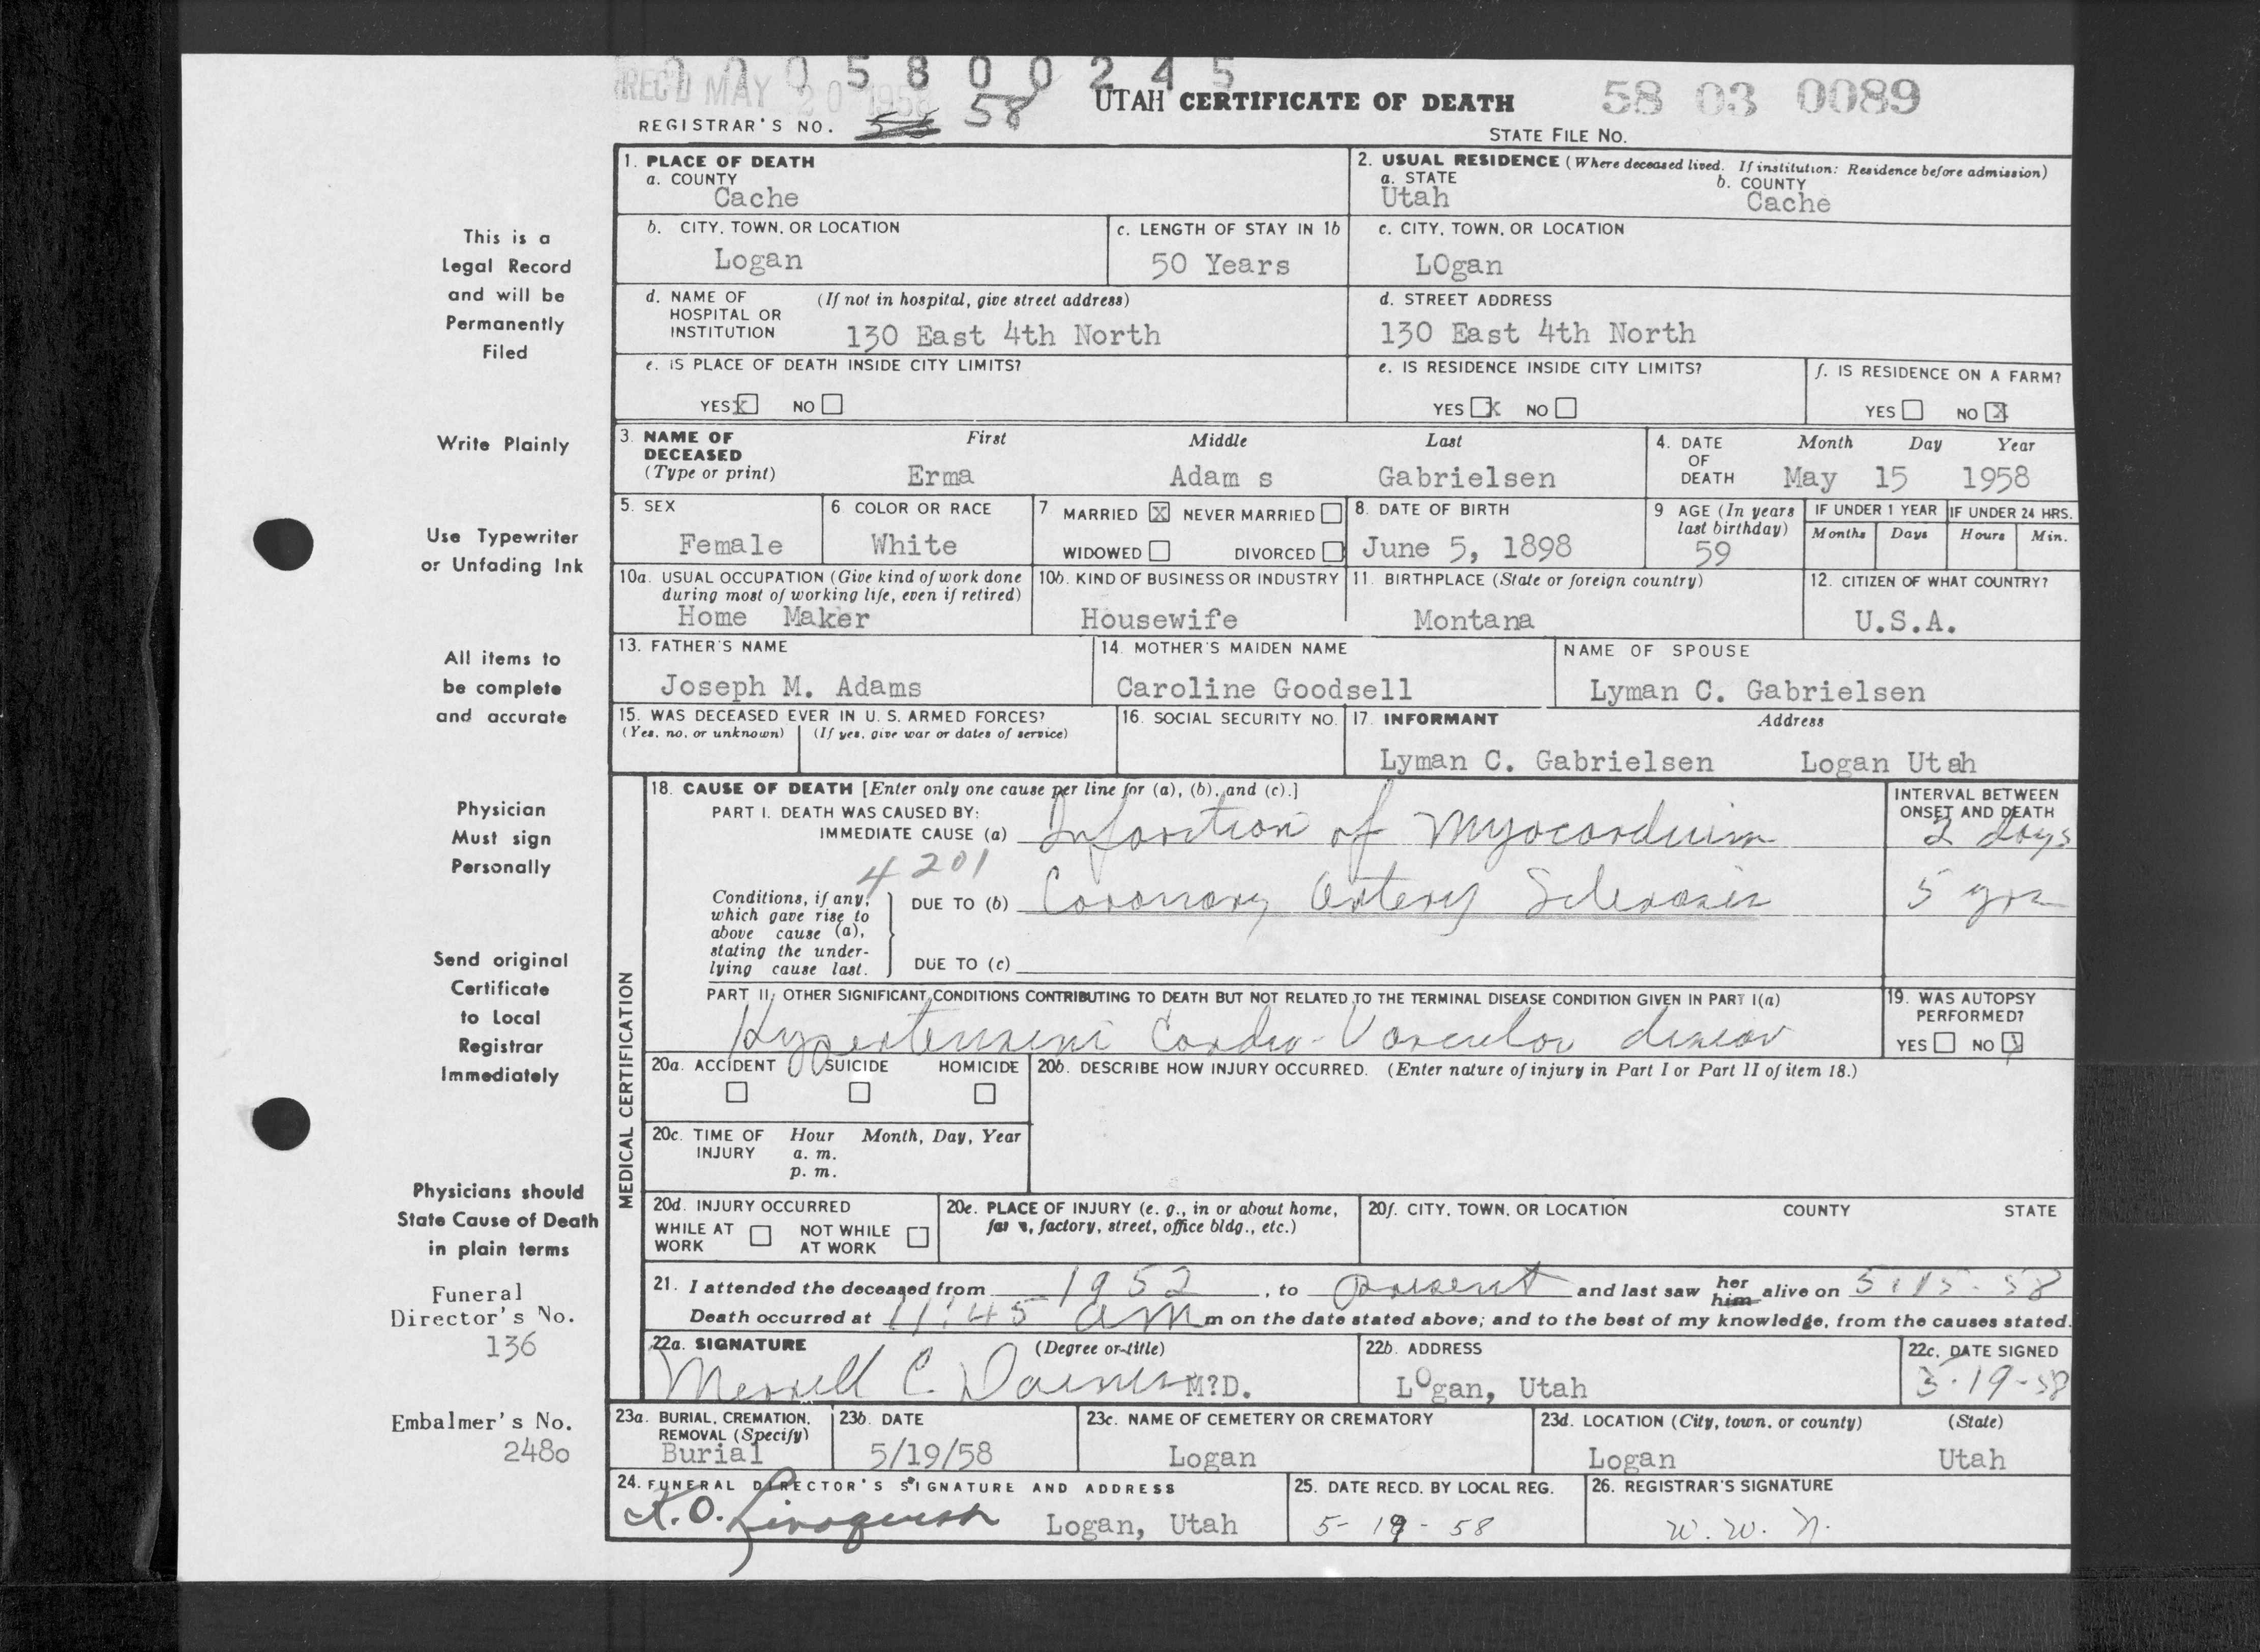 0 0 0 5 8 0 0 2 4 5
REC'D MAY 20 1958
58
UTAH CERTIFICATE OF DEATH
58 03 0089
REGISTRAR'S NO.
STATE FILE NO.
1. PLACE OF DEATH
a. COUNTY
Cache
2. USUAL RESIDENCE (Where deceased lived. If institution: Residence before admission)
a. STATE
b. COUNTY
Utah
Cache
b. CITY, TOWN, OR LOCATION
Logan
c. LENGTH OF STAY IN 1b
50 Years
c. CITY, TOWN, OR LOCATION
LOgan
d. NAME OF HOSPITAL OR INSTITUTION
(If not in hospital, give street address)
130 East 4th North
d. STREET ADDRESS
130 East 4th North
e. IS PLACE OF DEATH INSIDE CITY LIMITS?
YES X NO
e. IS RESIDENCE INSIDE CITY LIMITS?
YES X NO
f. IS RESIDENCE ON A FARM?
YES NO X
3. NAME OF DECEASED
(Type or print)
First
Middle
Last
Erma
Adam s
Gabrielsen
4. DATE OF DEATH
Month Day Year
May 15 1958
5. SEX
Female
6 COLOR OR RACE
White
7 MARRIED X NEVER MARRIED
WIDOWED DIVORCED
8. DATE OF BIRTH
June 5, 1898
9 AGE (In years last birthday)
59
IF UNDER 1 YEAR
Months Days
IF UNDER 24 HRS.
Hours Min.
10a. USUAL OCCUPATION (Give kind of work done
during most of working life, even if retired)
Home Maker
10b. KIND OF BUSINESS OR INDUSTRY
Housewife
11. BIRTHPLACE (State or foreign country)
Montana
12. CITIZEN OF WHAT COUNTRY?
U.S.A.
13. FATHER'S NAME
Joseph M. Adams
14. MOTHER'S MAIDEN NAME
Caroline Goodsell
NAME OF SPOUSE
Lyman C. Gabrielsen
15. WAS DECEASED EVER IN U. S. ARMED FORCES?
(Yes, no, or unknown) (If yes, give war or dates of service)
16. SOCIAL SECURITY NO.
17. INFORMANT
Address
Lyman C. Gabrielsen Logan Utah
MEDICAL CERTIFICATION
18. CAUSE OF DEATH [Enter only one cause per line for (a), (b), and (c).]
PART I. DEATH WAS CAUSED BY:
IMMEDIATE CAUSE (a) Infarction of Myocardium
INTERVAL BETWEEN
ONSET AND DEATH
2 days
4201
Conditions, if any,
which gave rise to
above cause (a),
stating the under-
lying cause last.
DUE TO (b) Coronary Artery Sclerosis
5 yrs
DUE TO (c)
PART II. OTHER SIGNIFICANT CONDITIONS CONTRIBUTING TO DEATH BUT NOT RELATED TO THE TERMINAL DISEASE CONDITION GIVEN IN PART I(a)
Hypertensive Cardio-Vascular disease
19. WAS AUTOPSY
PERFORMED?
YES NO X
20a. ACCIDENT SUICIDE HOMICIDE
20b. DESCRIBE HOW INJURY OCCURRED. (Enter nature of injury in Part I or Part II of item 18.)
20c. TIME OF INJURY
Hour Month, Day, Year
a. m.
p. m.
20d. INJURY OCCURRED
WHILE AT WORK
NOT WHILE AT WORK
20e. PLACE OF INJURY (e. g., in or about home,
farm, factory, street, office bldg., etc.)
20f. CITY, TOWN, OR LOCATION COUNTY STATE
21. I attended the deceased from 1952, to present and last saw her him alive on 5-15-58
Death occurred at 11:45 am m on the date stated above; and to the best of my knowledge, from the causes stated.
22a. SIGNATURE
(Degree or title)
Merrill C. Daines M?D.
22b. ADDRESS
LOgan, Utah
22c. DATE SIGNED
5-19-58
23a. BURIAL, CREMATION,
REMOVAL (Specify)
Burial
23b. DATE
5/19/58
23c. NAME OF CEMETERY OR CREMATORY
Logan
23d. LOCATION (City, town, or county) (State)
Logan Utah
24. FUNERAL DIRECTOR'S SIGNATURE AND ADDRESS
K.O. Lindquist Logan, Utah
25. DATE RECD. BY LOCAL REG.
5-19-58
26. REGISTRAR'S SIGNATURE
W. W. N.
This is a
Legal Record
and will be
Permanently
Filed
Write Plainly
Use Typewriter
or Unfading Ink
All items to
be complete
and accurate
Physician
Must sign
Personally
Send original
Certificate
to Local
Registrar
Immediately
Physicians should
State Cause of Death
in plain terms
Funeral
Director's No.
136
Embalmer's No.
2480